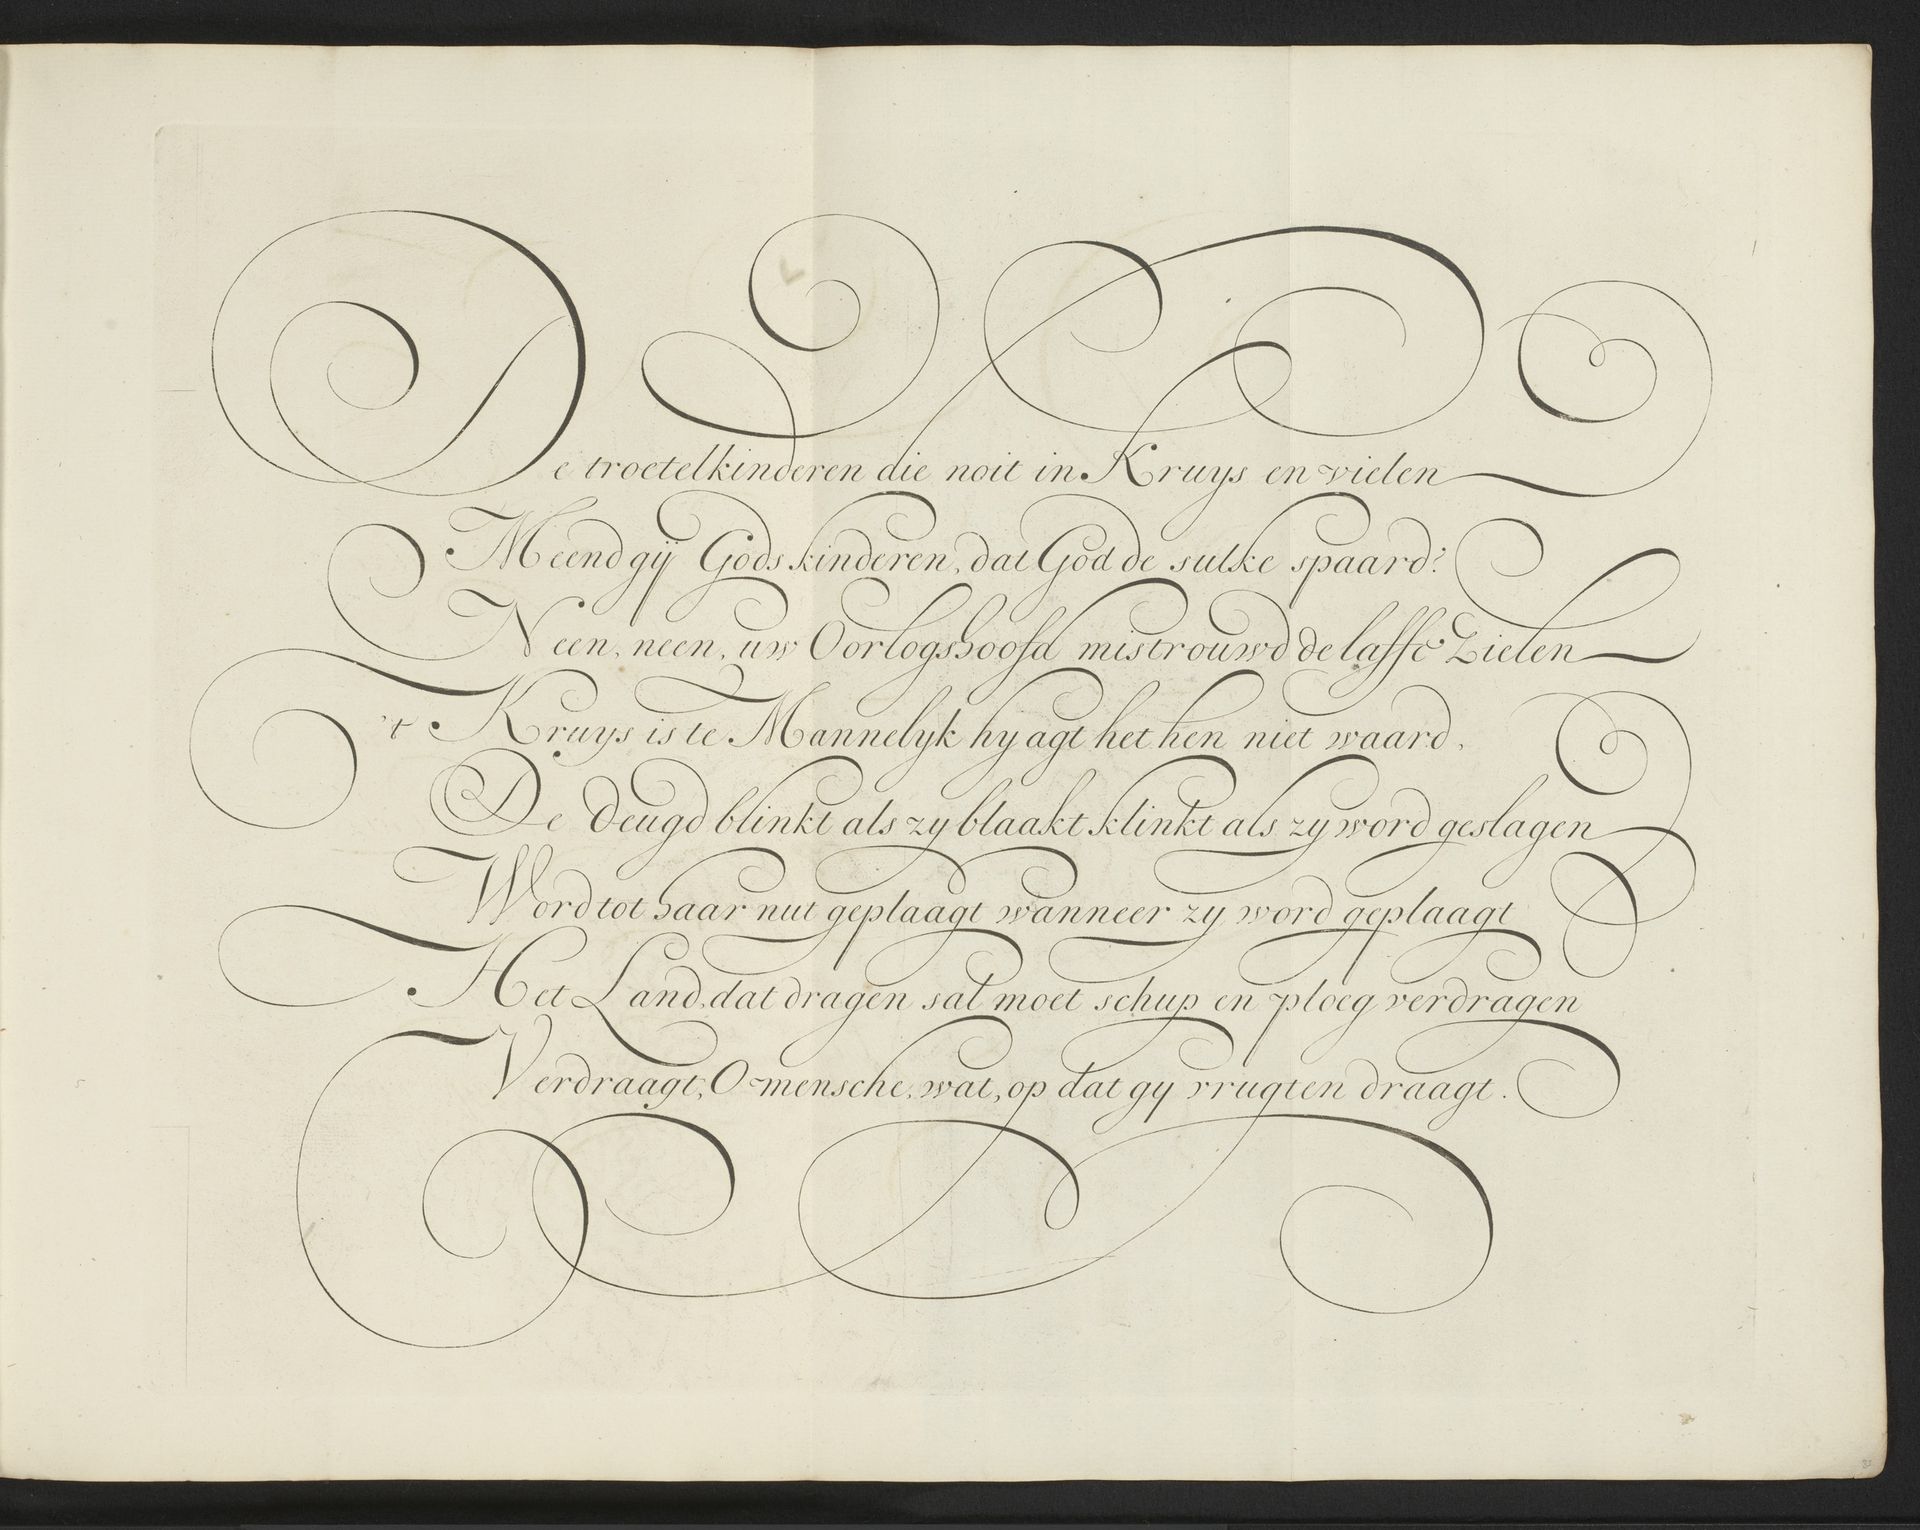 De troetelkinderen die noit in Kruys en vielen
Meend gij Gods kinderen, dat God de sulke spaard?
Neen, neen, uw Oorlogshoofd mistrouwd de laffe Zielen
't Kruys is te Mannelyk hy agt het hen niet waard,
De deugd blinkt als zy blaakt klinkt als zy word geslagen
Word tot haar nut geplaagt wanneer zy word geplaagt
Het Land, dat dragen sal moet schup en ploeg verdragen
Verdraagt, O mensche, wat, op dat gy vrugten draagt.